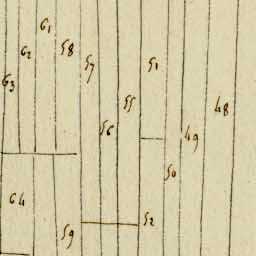 61
62
58
63
57
51
55
48
56
49
50
64
52
59